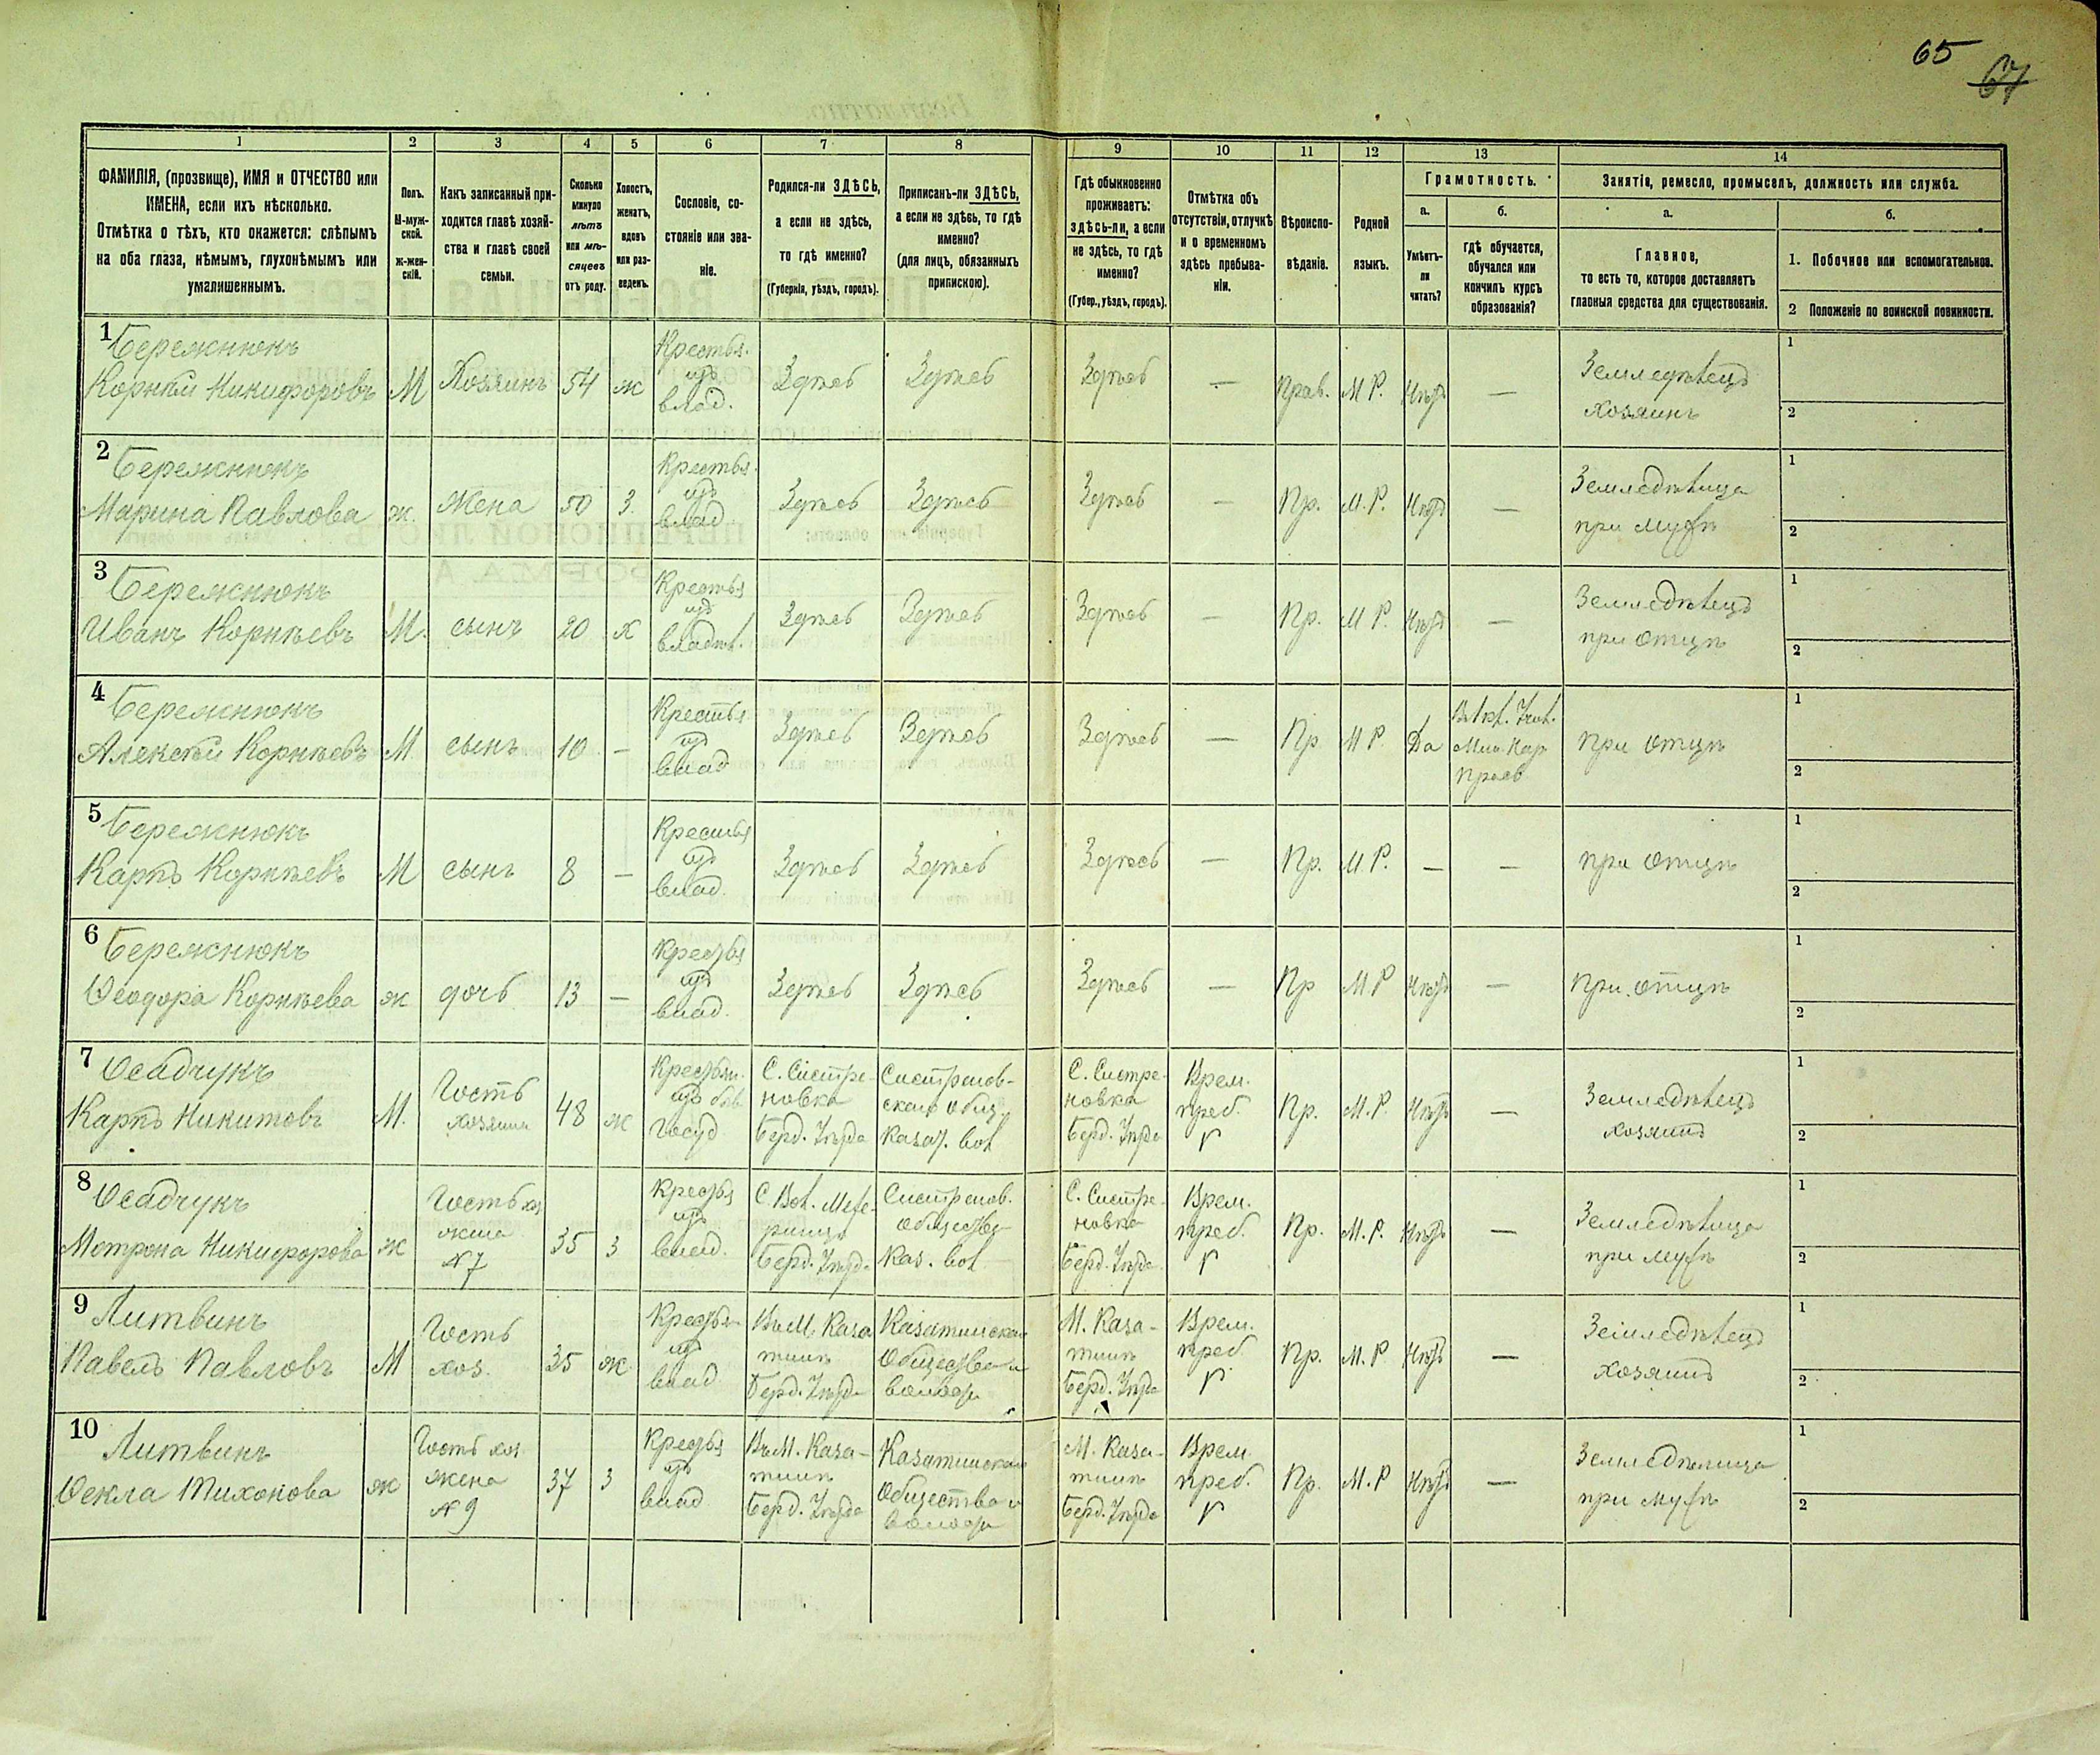 65
67
1
2
3
4
5
6
7
8
9
10
11
12
13
14
ФАМИЛІЯ, (прозвище), ИМЯ и ОТЧЕСТВО или
ИМЕНА, если ихъ нѣсколько.
Отмѣтка о тѣхъ, кто окажется: слѣпымъ
на оба глаза, нѣмымъ, глухонѣмымъ или
умалишеннымъ.
Полъ.
М-муж-
ской.
Ж-жен-
скій.
Какъ записанный при-
ходится главѣ хозяй-
ства и главѣ своей
семьи.
Сколько
минуло
лѣтъ
или мѣ-
сяцевъ
отъ роду.
Холостъ,
женатъ,
вдовъ
или раз-
веденъ.
Сословіе, со-
стояніе или зва-
ніе.
Родился-ли ЗДѢСЬ,
а если не здѣсь,
то гдѣ именно?
(Губернія, уѣздъ, городъ).
Приписанъ-ли ЗДѢСЬ,
а если не здѣсь, то гдѣ
именно?
(для лицъ, обязанныхъ
припискою).
Гдѣ обыкновенно
проживаетъ:
здѣсь-ли, а если
не здѣсь, то гдѣ
именно?
(Губер., уѣздъ, городъ).
Отмѣтка объ
отсутствіи, отлучкѣ
и о временномъ
здѣсь пребыва-
ніи.
Вѣроиспо-
вѣданіе.
Родной
языкъ.
Грамотность.
а.
Умѣетъ-
ли
читать?
б.
гдѣ обучается,
обучался или
кончилъ курсъ
образованія?
Занятіе, ремесло, промыселъ, должность или служба.
а.
Главное,
то есть то, которое доставляетъ
главныя средства для существованія.
б.
1. Побочное или вспомогательное.
2 Положеніе по воинской повинности.
1 Бережнюкъ
Корнѣй Никифоровъ М Хозяинъ 54 ж Крестья. изъ влад. Здѣсь Здѣсь Здѣсь — Прав. М Р. Нѣтъ — Земледѣлецъ хозяинъ
1
2
2 Бережнюкъ
Марина Павлова ж. жена 50 з. Крестья. изъ влад. Здѣсь Здѣсь Здѣсь — Пр. М. Р. Нѣтъ — Земледѣлица при мужѣ
1
2
3 Бережнюкъ
Иванъ Корнѣевъ М. сынъ 20 х Крестья изъ владѣл. Здѣсь Здѣсь Здѣсь — Пр. М Р. Нѣтъ — Земледѣлецъ при отцѣ
1
2
4 Бережнюкъ
Алексѣй Корнѣевъ М. сынъ 10 — Крестья изъ влад Здѣсь Здѣсь Здѣсь — Пр М Р. Да при отцѣ
1
2
5 Бережнюкъ
Карпъ Корнѣевъ М сынъ 8 — Крестья изъ влад. Здѣсь Здѣсь Здѣсь — Пр. М. Р. — — при отцѣ
1
2
6 Бережнюкъ
Ѳеодора Корнѣева ж дочь 13 — Крестья изъ влад. Здѣсь Здѣсь Здѣсь — Пр М Р Нѣтъ — при отцѣ
1
2
7 Осадчукъ
Карпъ Никитовъ М. Гость хозяина 48 ж Крестьян. изъ быв. госуд С. Сестре- новка Берд. Уѣзда Сестренов- скаго общ. Казат. вол С. Сестре- новка Берд. Уѣзда Врем. преб. Пр. М. Р. Нѣтъ — Земледѣлецъ хозяинъ
1
2
8 Осадчукъ
Мотрона Никифорова ж Гость хоз жена №7 35 з Крестья изъ влад. Берд. Уѣзда Сестренов. общества Каз. вол С. Сестре- новка Берд. Уѣзда Врем. преб. Пр. М. Р. Нѣтъ — Земледѣлица при мужѣ
1
2
9 Литвинъ
Павелъ Павловъ М Гость хоз. 35 ж Крестья изъ влад Въ М. Каза тинѣ Берд. Уѣзда Казатинскаго общества и волости М. Каза- тинѣ Берд. Уѣзда Врем. преб. Пр. М. Р Нѣтъ — Земледѣлецъ хозяинъ
1
2
10 Литвинъ
Ѳекла Тихонова ж Гость хоз. жена №9 37 з Крестья изъ влад Въ М. Каза- тинѣ Берд. Уѣзда Казатинскаго общества и волости М. Каза- тинѣ Берд. Уѣзда Врем преб. Пр. М. Р Нѣтъ — Земледѣлица при мужѣ
1
2